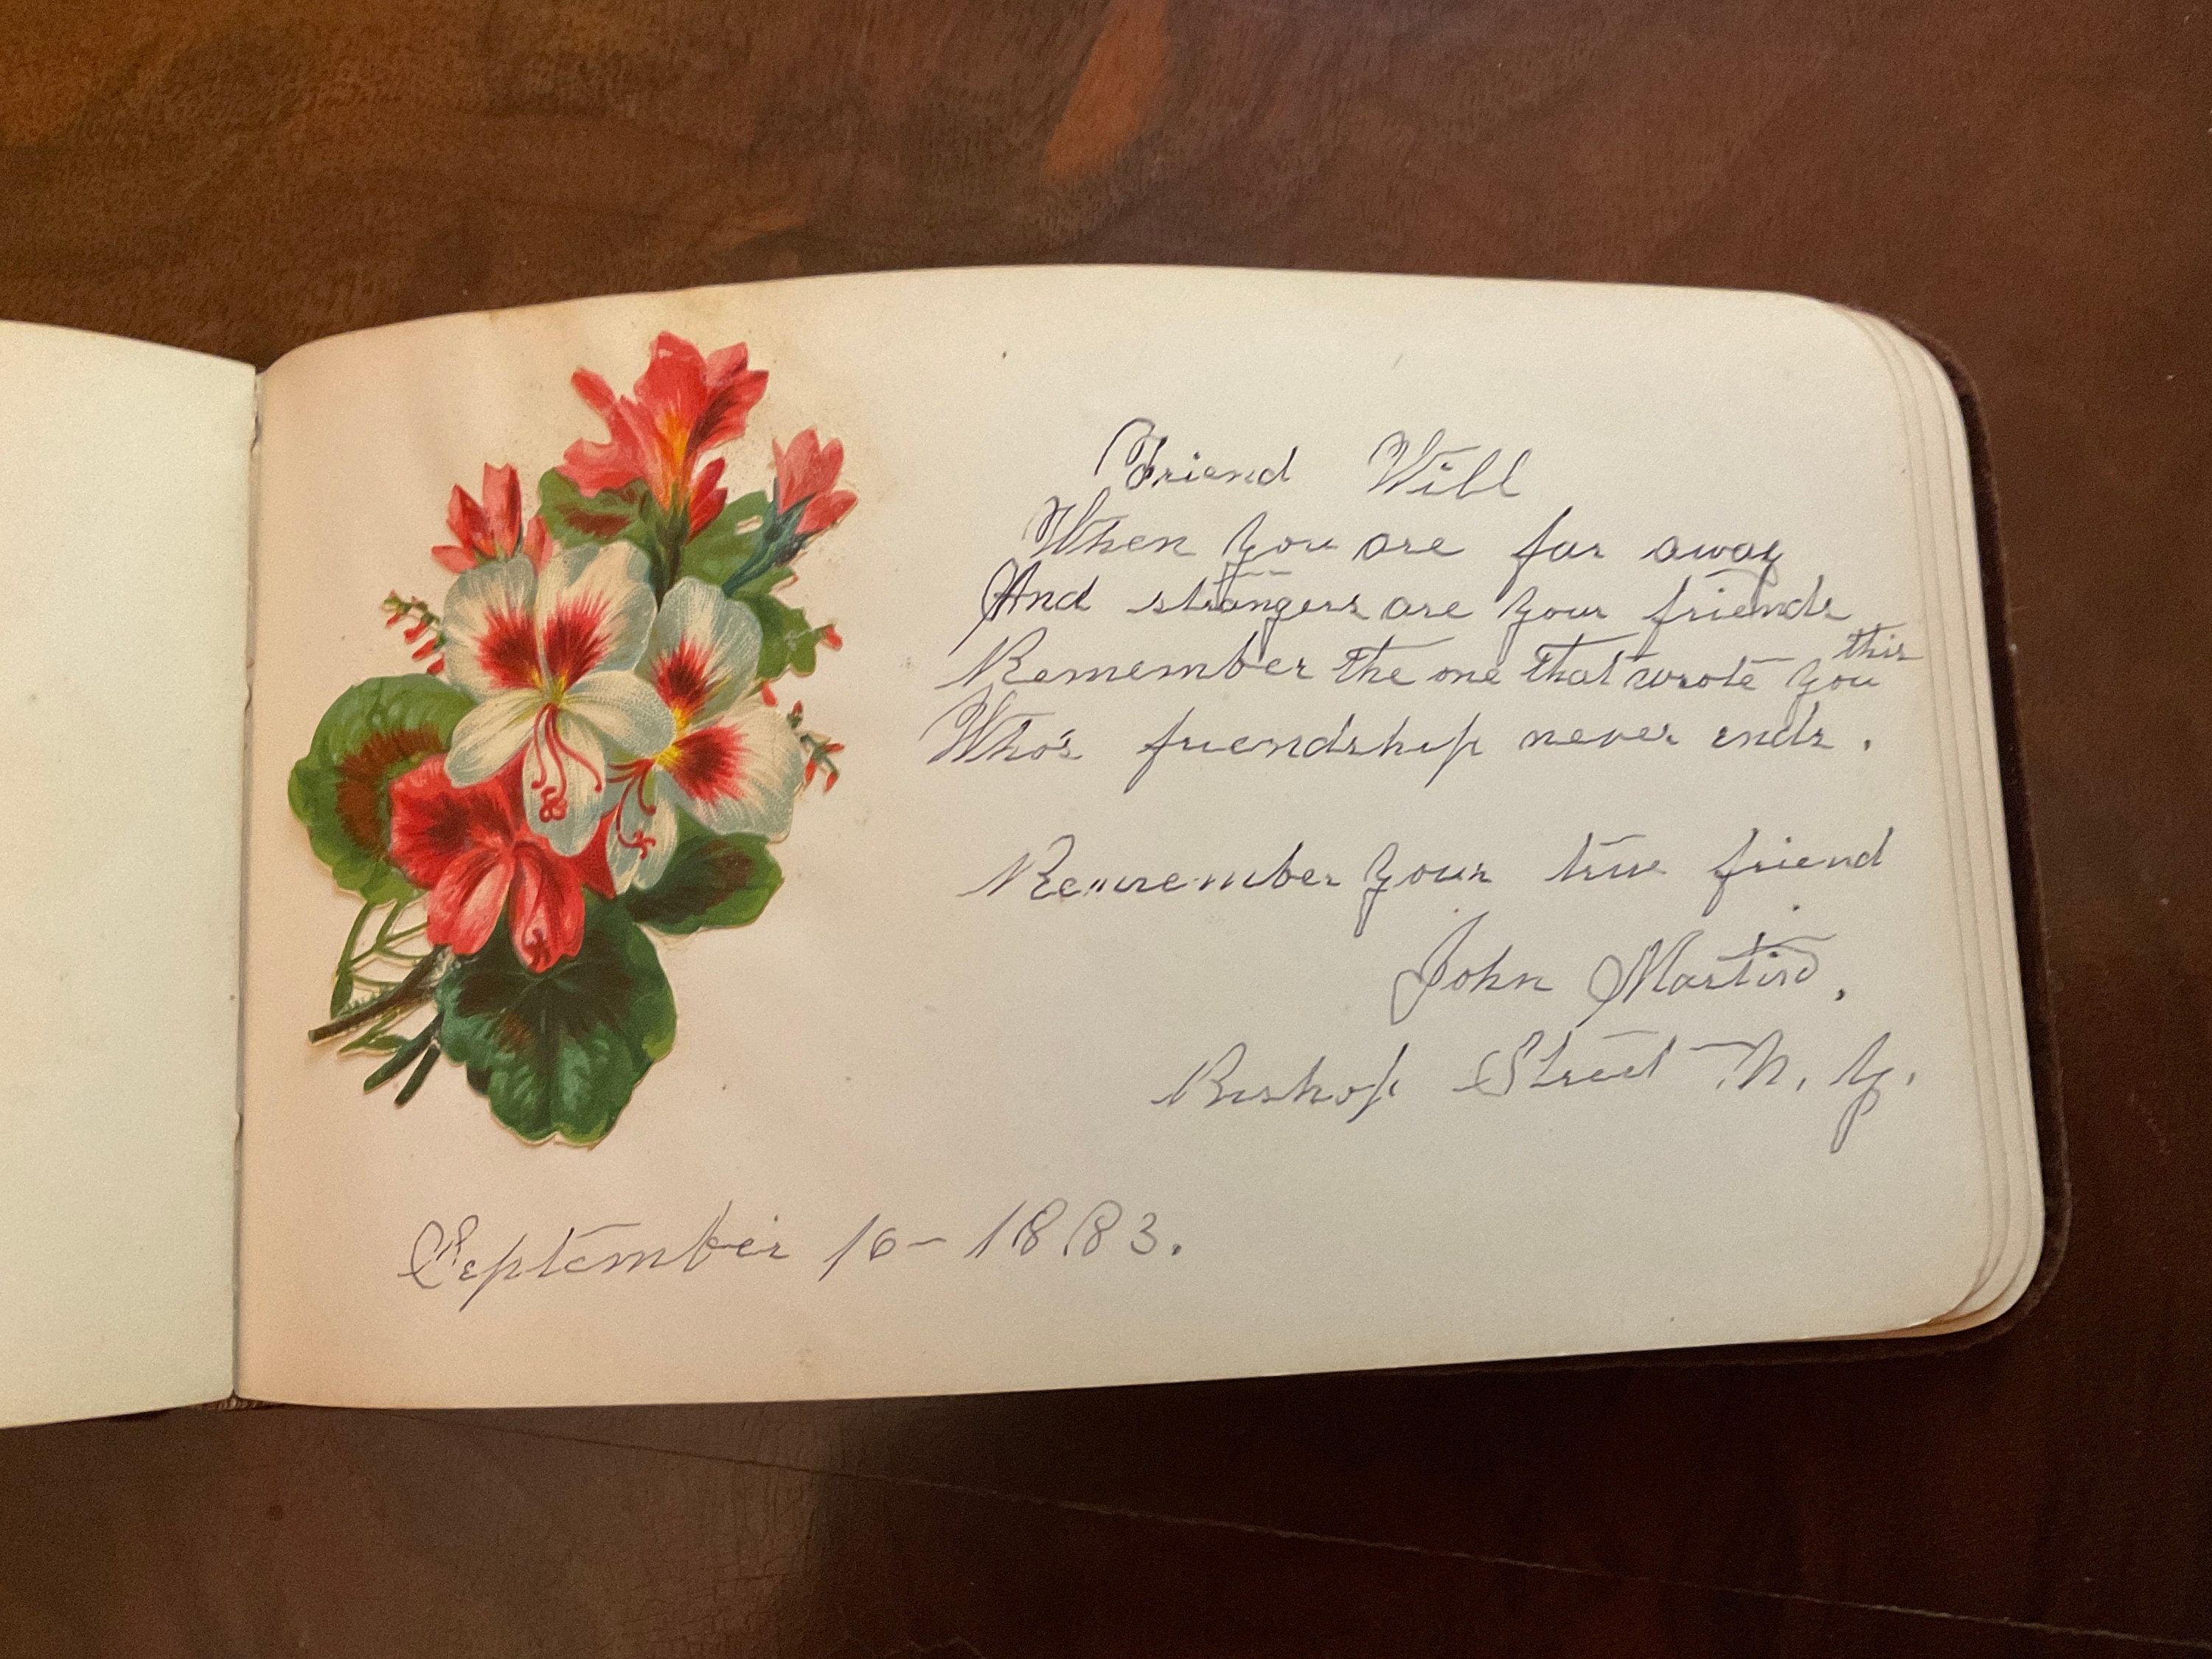 Friend Will
When you are far away
And strangers are your friends
Remember the one that wrote you this
Who's friendship never ends.
Remember your true friend
John Martin.
Bishop Street N. Y.
September 16 - 1883.